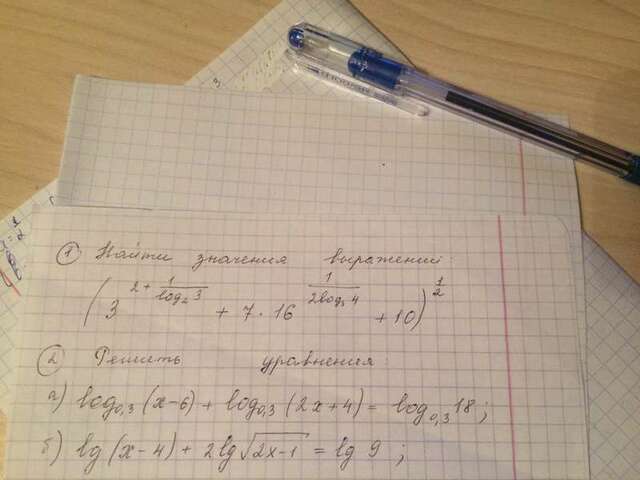 ① Найти значения выражений:
(3^{2+\frac{1}{log_2 3}} + 7·16^{\frac{1}{2log_3 4}} + 10)^{\frac{1}{2}}
② Решить уравнения:
а) log_{0,3}(x-6) + log_{0,3}(2x+4) = log_{0,3}18;
б) lg(x-4) + 2lg√(2x-1) = lg 9;